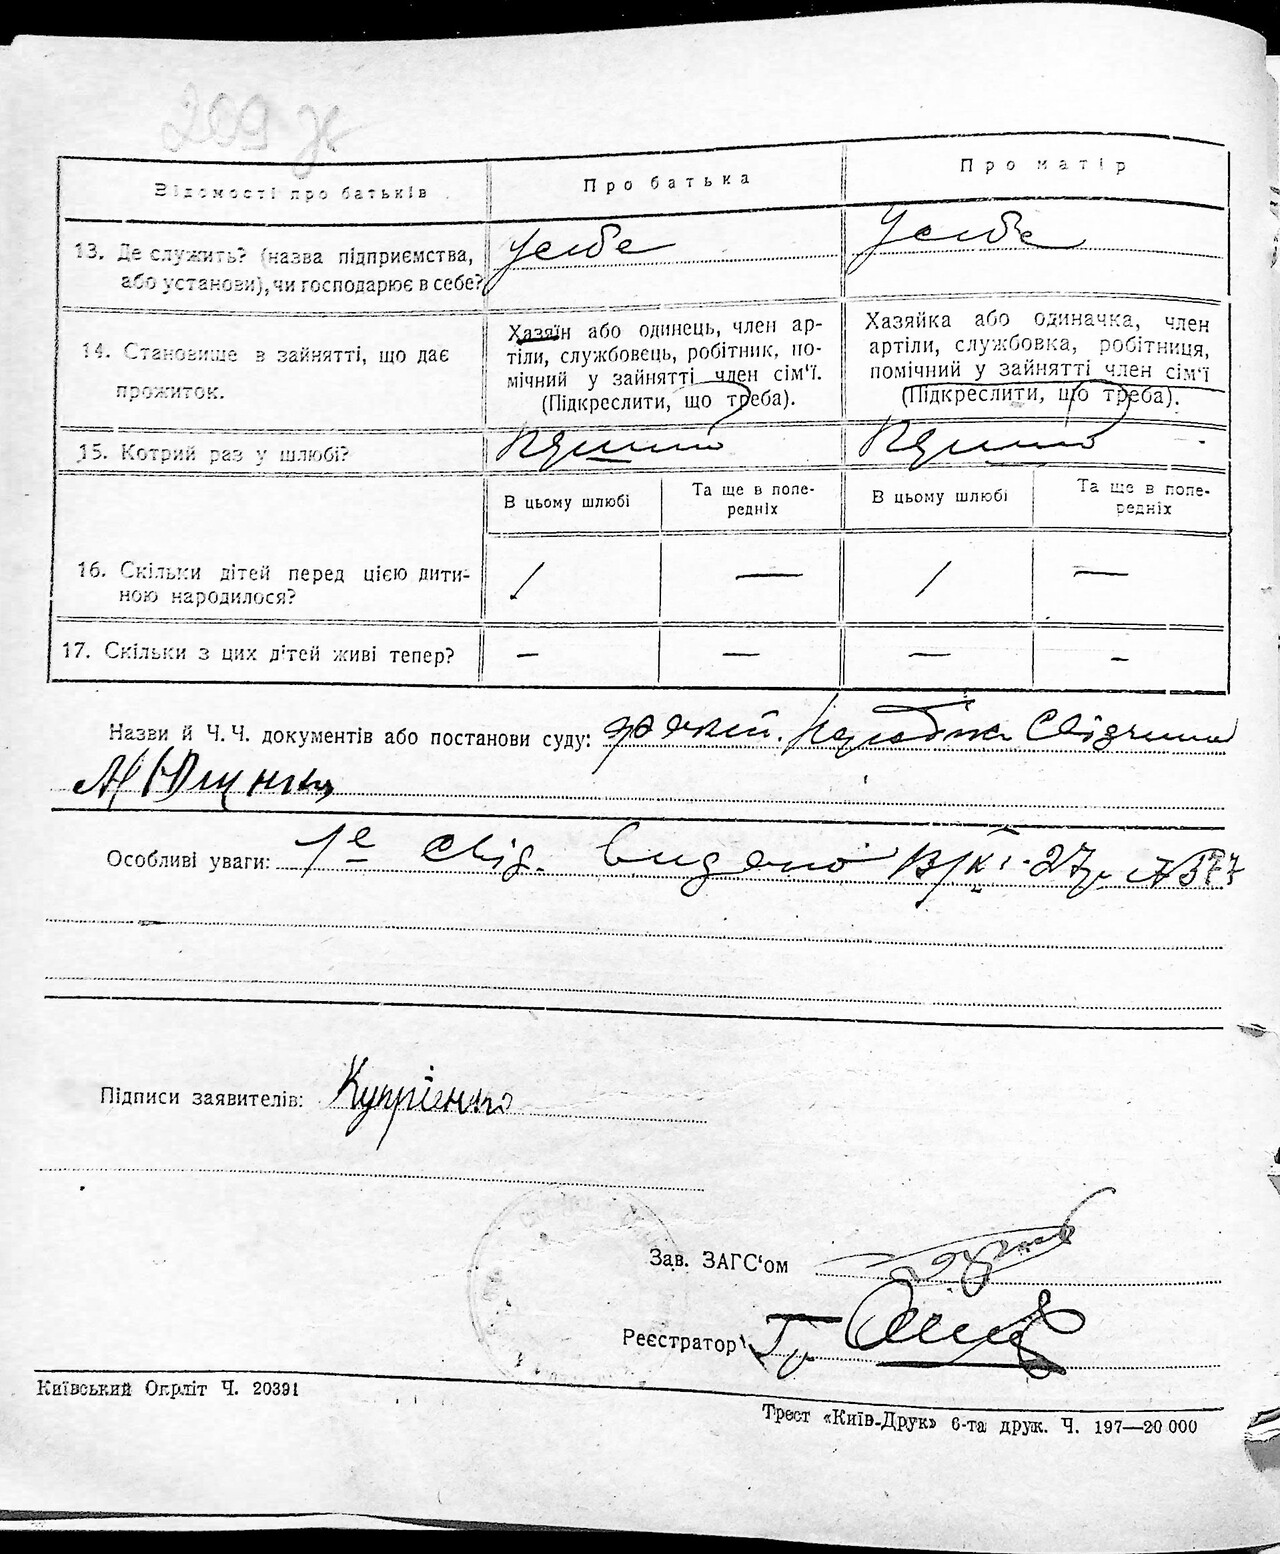 209 ж
Відомості про батьків
Про батька
Про матір
13. Де служить? (назва підприємства,
або установи), чи господарює в себе?
У себе
У себе
14. Становище в зайнятті, що дає
прожиток.
Хазяїн або одинець, член ар-
тілі, службовець, робітник, по-
мічний у зайнятті член сім'ї.
(Підкреслити, що треба).
Хазяйка або одиначка, член
артілі, службовка, робітниця,
помічний у зайнятті член сім'ї
(Підкреслити, що треба).
15. Котрий раз у шлюбі?
В цьому шлюбі
Та ще в попе-
редніх
В цьому шлюбі
Та ще в попе-
редніх
16. Скільки дітей перед цією дити-
ною народилося?
/ — / —
17. Скільки з цих дітей живі тепер?
— — — —
Назви й Ч. Ч. документів або постанови суду:
Особливі уваги: 1е свід. видано
Підписи заявителів: Купрієнко
Зав. ЗАГС'ом
Реєстратор
Київський Окрліт Ч. 20391
Трест «Київ-Друк» 6-та друк. Ч. 197—20 000